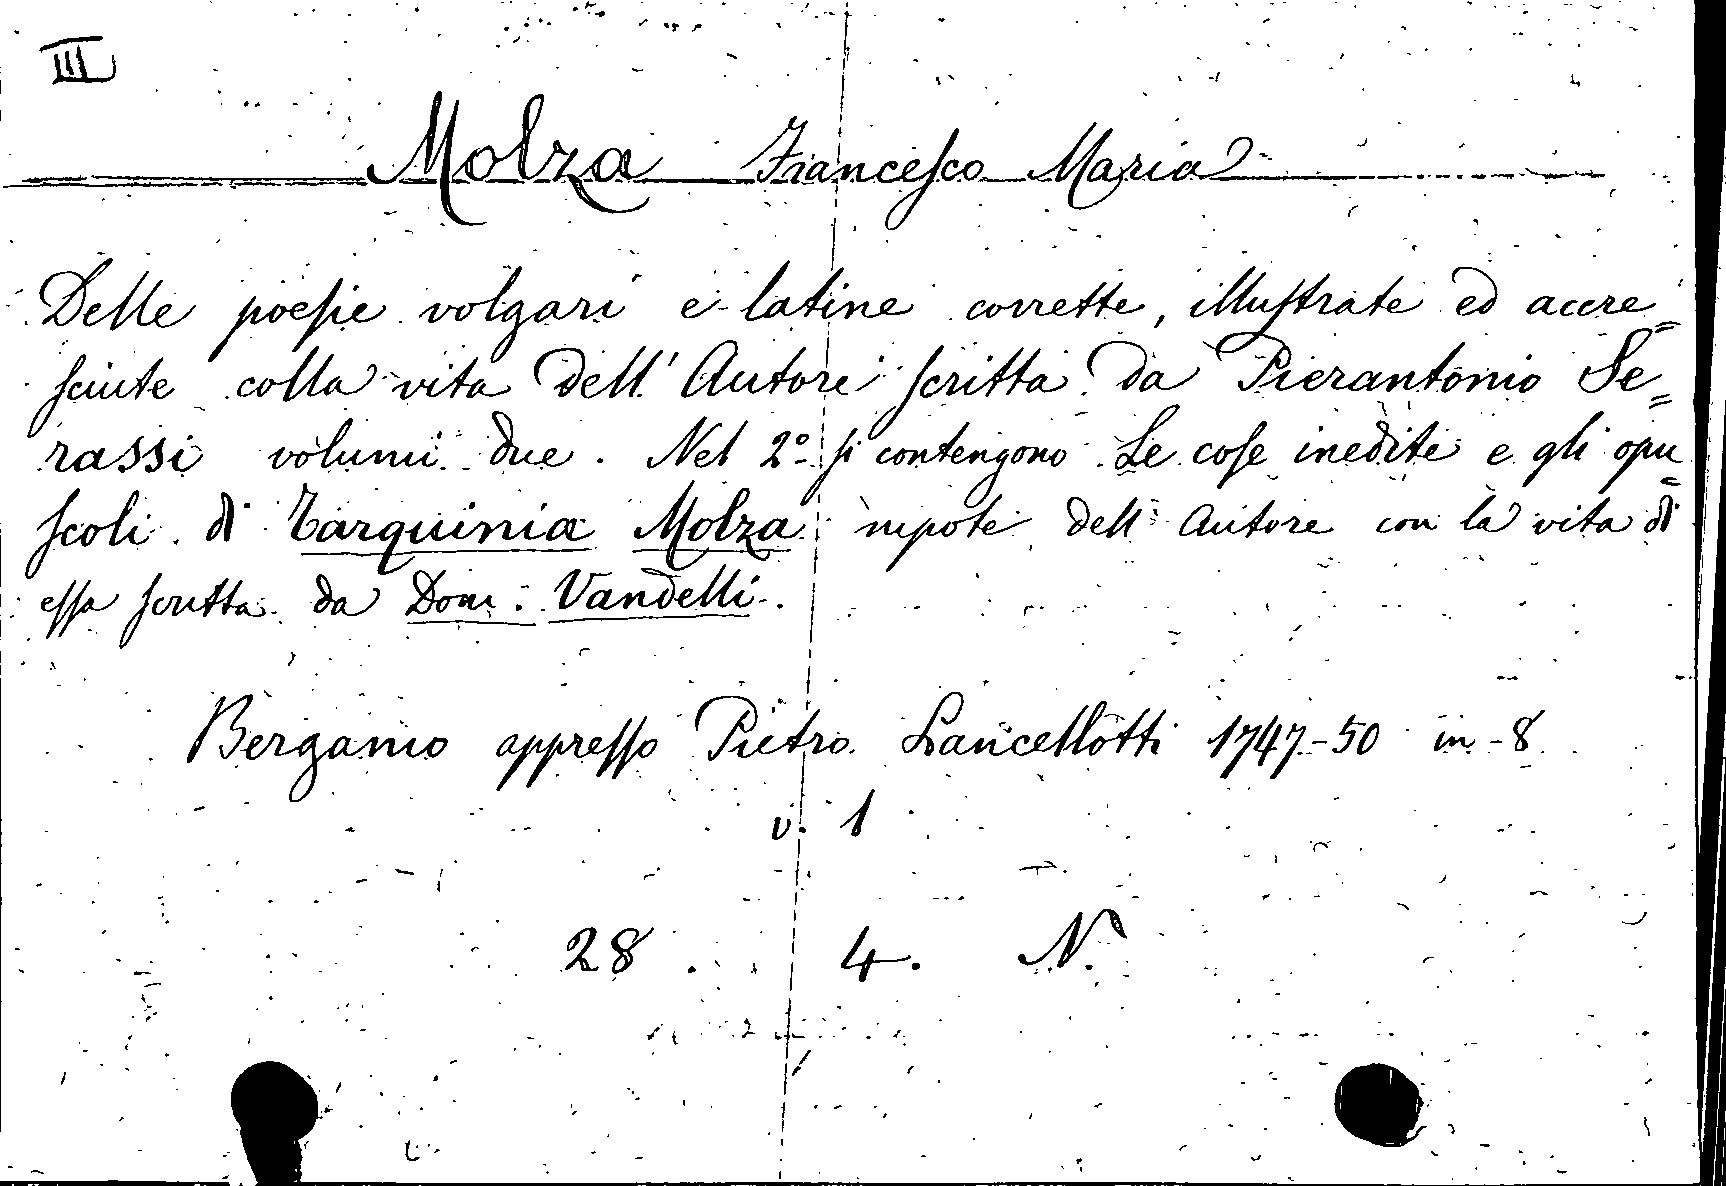 III
Molza Francesco Maria
Delle poesie volgari e latine corrette, illustrate ed accre=
sciute colla vita dell' Autore scritta da Pierantonio Se=
rassi volumi due. Nel 2° si contengono Le cose inedite e gli opu=
scoli di Tarquinia Molza nipote dell' Autore con la vita di
essa scritta da Dom. Vandelli.
Bergamo appresso Pietro Lancellotti 1747-50 in-8
v. 1
28. 4. N.